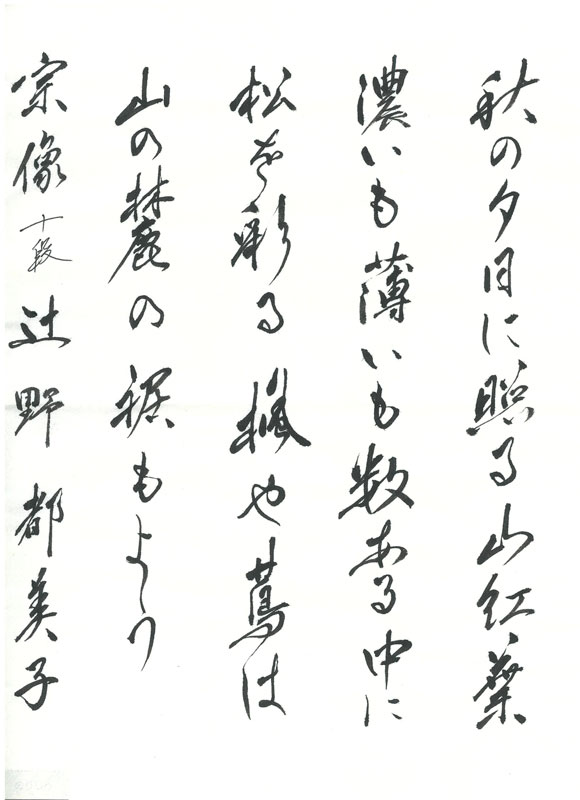 秋の夕日に照る山紅葉
濃いも薄いも数ある中に
松を彩る楓や蔦は
山の麓の裾もよう
宗像 十段 辻野都美子